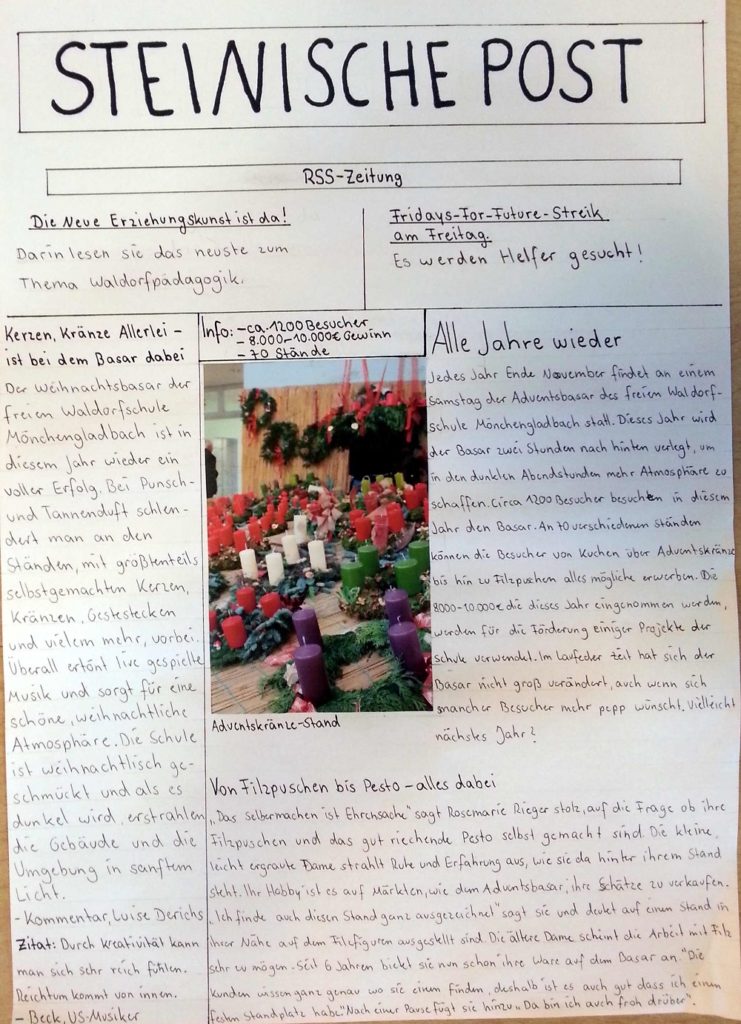 STEINISCHE POST
RSS-Zeitung
Die Neue Erziehungskunst ist da!
Darin lesen sie das neuste zum
Thema Waldorfpädagogik.
Fridays-For-Future-Streik
am Freitag.
Es werden Helfer gesucht!
Kerzen, Kränze Allerlei –
ist bei dem Basar dabei
Der Weihnachtsbasar der
freien Waldorfschule
Mönchengladbach ist in
diesem Jahr wieder ein
voller Erfolg. Bei Punsch-
und Tannenduft schlen-
dert man an den
Ständen, mit größtenteils
selbstgemachten Kerzen,
Kränzen, Gestestecken
und vielem mehr, vorbei.
Überall ertönt live gespielte
Musik und sorgt für eine
schöne, weihnachtliche
Atmosphäre. Die Schule
ist weihnachtlisch ge-
schmückt und als es
dunkel wird, erstrahlen
die Gebäude und die
Umgebung in sanftem
Licht.
- Kommentar, Luise Derichs
Zitat: Durch kreativität kann
man sich sehr reich fühlen.
Reichtum kommt von innen.
– Beck, US-Musiker
Info: – ca. 1200 Besucher
– 8.000–10.000€ Gewinn
– 70 Stände
Adventskränze-Stand
Alle Jahre wieder
Jedes Jahr Ende November findet an einem
Samstag der Adventsbasar des freien Waldorf-
schule Mönchengladbach statt. Dieses Jahr wird
der Basar zwei Stunden nach hinten verlegt, um
in den dunklen Abendstunden mehr Atmosphäre zu
schaffen. Circa 1200 Besucher besuchen in diesem
Jahr den Basar. An 70 verschiedenen Ständen
können die Besucher von Kuchen über Adventskränze
bis hin zu Filzpuschen alles mögliche erwerben. Die
8000-10.000€ die dieses Jahr eingenommen werden,
werden für die Förderung einiger Projekte der
schule verwendet. Im Laufe der Zeit hat sich der
Basar nicht groß verändert, auch wenn sich
mancher Besucher mehr pepp wünscht. Vielleicht
nächstes Jahr?
Von Filzpuschen bis Pesto – alles dabei
„Das selbermachen ist Ehrensache" sagt Rosemarie Rieger stolz, auf die Frage ob ihre
Filzpuschen und das gut riechende Pesto selbst gemacht sind. Die kleine,
leicht ergraute Dame strahlt Ruhe und Erfahrung aus, wie sie da hinter ihrem Stand
steht. Ihr Hobby ist es auf Märkten, wie dem Adventsbasar, ihre Schätze zu verkaufen.
„Ich finde auch diesen Stand ganz ausgezeichnet" sagt sie und deutet auf einen Stand in
ihrer Nähe auf dem Filzfiguren ausgestellt sind. Die ältere Dame scheint die Arbeit mit Filz
sehr zu mögen. Seit 6 Jahren bietet sie nun schon ihre Ware auf dem Basar an. "Die
kunden wissen ganz genau wo sie einen finden, deshalb ist es auch gut dass ich einen
festen Standplatz habe." Nach einer Pause fügt sie hinzu „Da bin ich auch froh drüber".